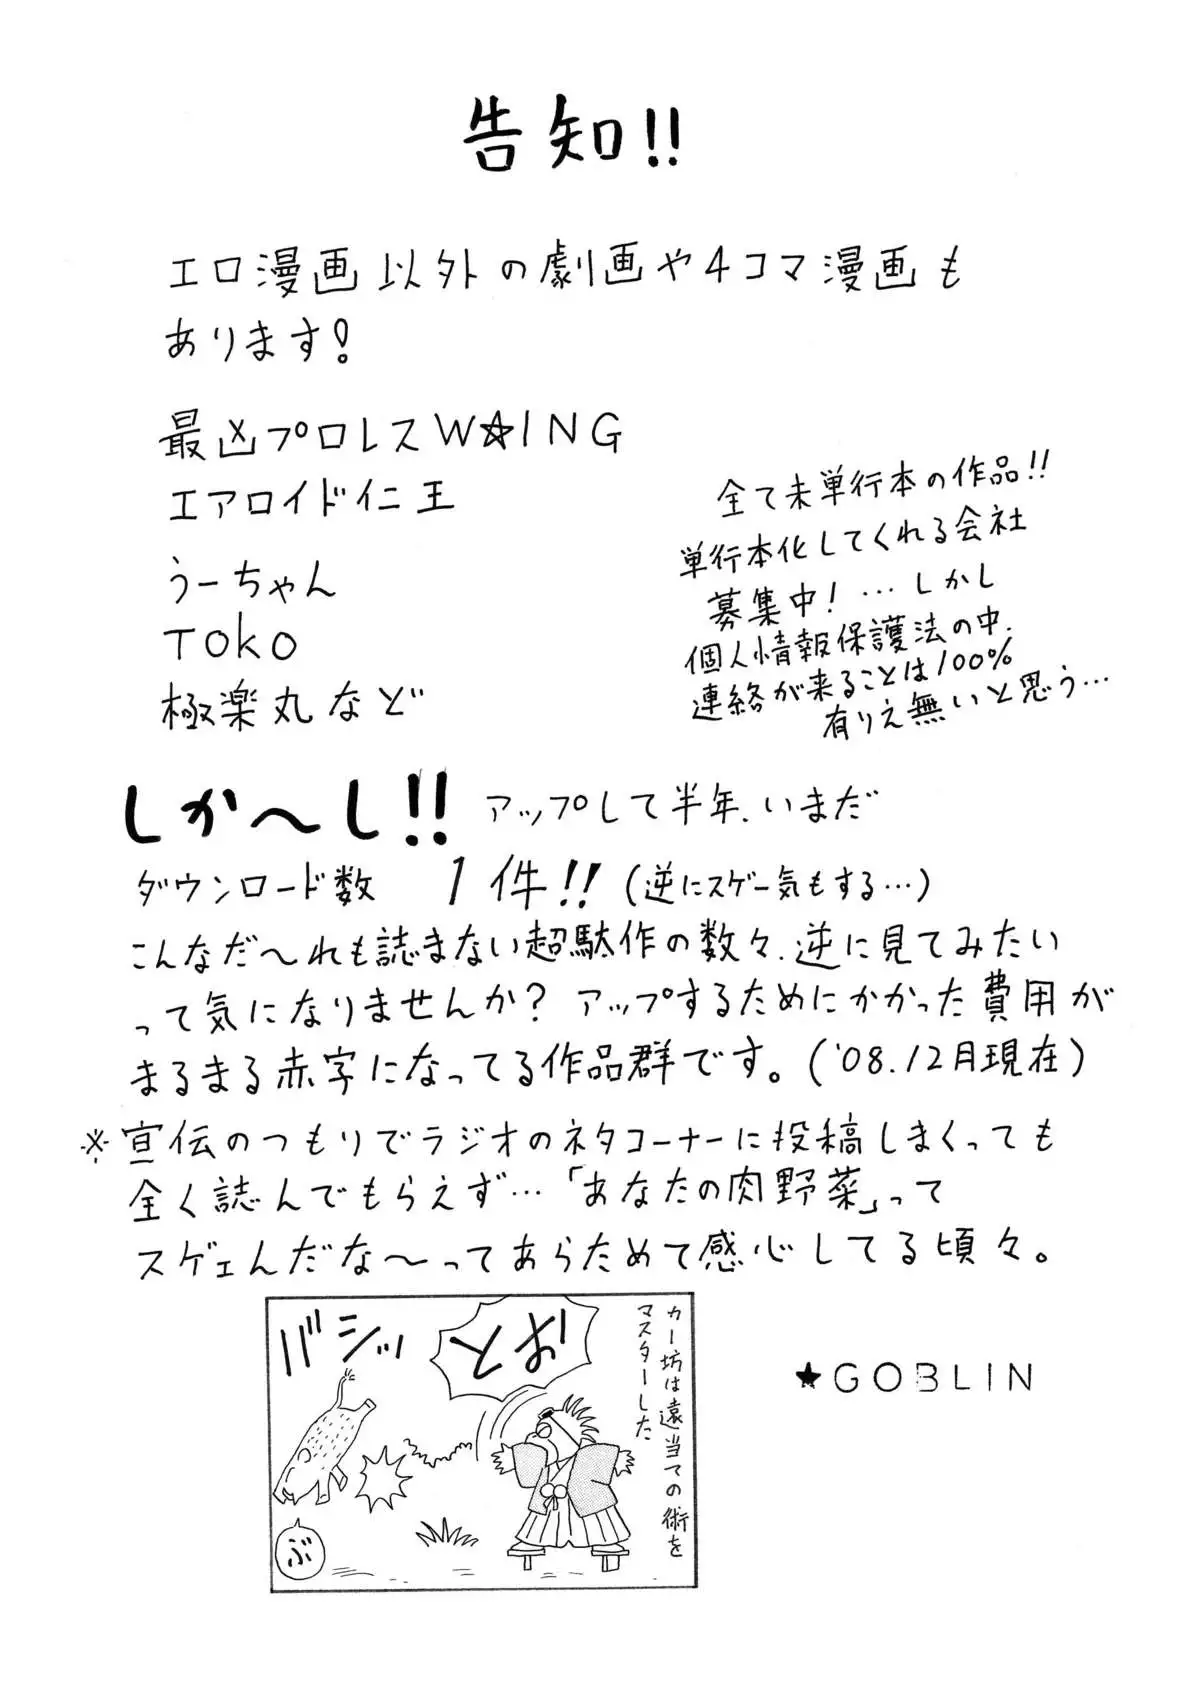 告知!!
エロ漫画以外の劇画や4コマ漫画も
あります!
最凶プロレスW☆ING
エアロイド仁王
うーちゃん
TOKO
極楽丸など
全て未単行本の作品!!
単行本化してくれる会社
募集中!…しかし
個人情報保護法の中、
連絡が来ることは100%
有りえ無いと思う…
しか〜し!! アップして半年、いまだ
ダウンロード数 1件!!(逆にスゲー気もする…)
こんなだ〜れも読まない超駄作の数々、逆に見てみたい
って気になりませんか?アップするためにかかった費用が
まるまる赤字になってる作品群です。('08.12月現在)
※宣伝のつもりでラジオのネタコーナーに投稿しまくっても
全く読んでもらえず…「あなたの肉野菜」って
スゲェんだな〜ってあらためて感心してる頃々。
カー坊は遠当ての術を
マスターした
とお
バシッ
ぶ
★GOBLIN